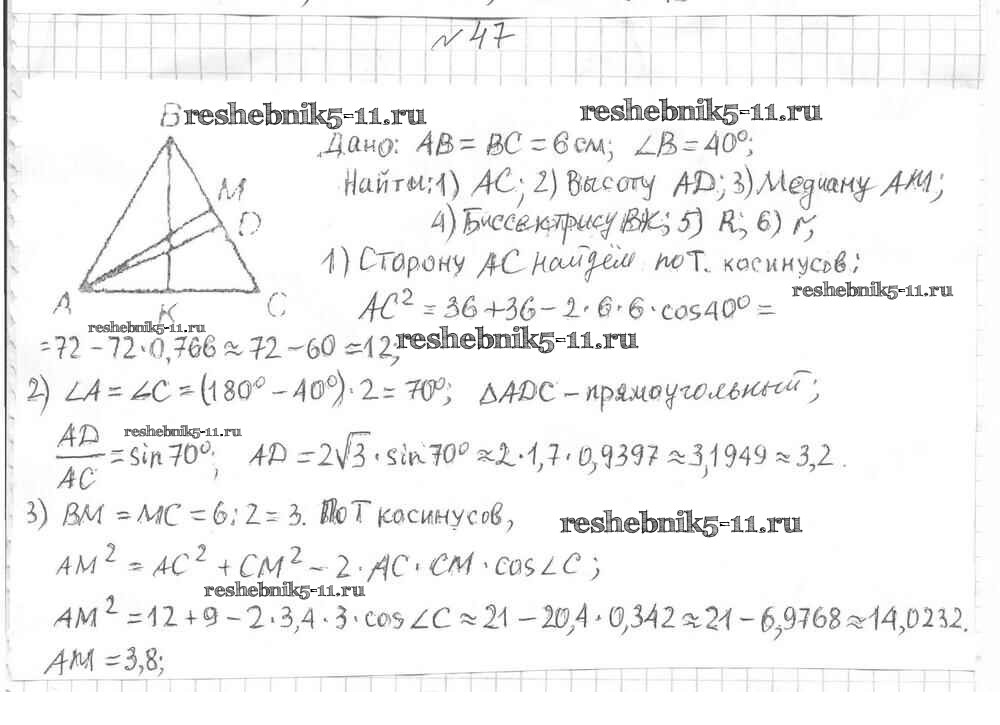 №47
B reshebnik5-11.ru reshebnik5-11.ru
Дано: AB = BC = 6 см; ∠B = 40°;
M Найти: 1) AC; 2) Высоту AD; 3) Медиану AM;
D 4) Биссектрису BK; 5) R; 6) r,
1) Сторону AC найдём по т. косинусов:
A K C
reshebnik5-11.ru
AC² = 36 + 36 - 2·6·6·cos40° =
reshebnik5-11.ru
= 72 - 72·0,766 ≈ 72 - 60 = 12; reshebnik5-11.ru
2) ∠A = ∠C = (180° - 40°)·2 = 70°; ΔADC - прямоугольный;
reshebnik5-11.ru
AD/AC = sin70°; AD = 2√3·sin70° ≈ 2·1,7·0,9397 ≈ 3,1949 ≈ 3,2.
3) BM = MC = 6:2 = 3. По т косинусов,
reshebnik5-11.ru
AM² = AC² + CM² - 2·AC·CM·cos∠C;
reshebnik5-11.ru
AM² = 12 + 9 - 2·3,4·3·cos∠C ≈ 21 - 20,4·0,342 ≈ 21 - 6,9768 ≈ 14,0232.
AM = 3,8;